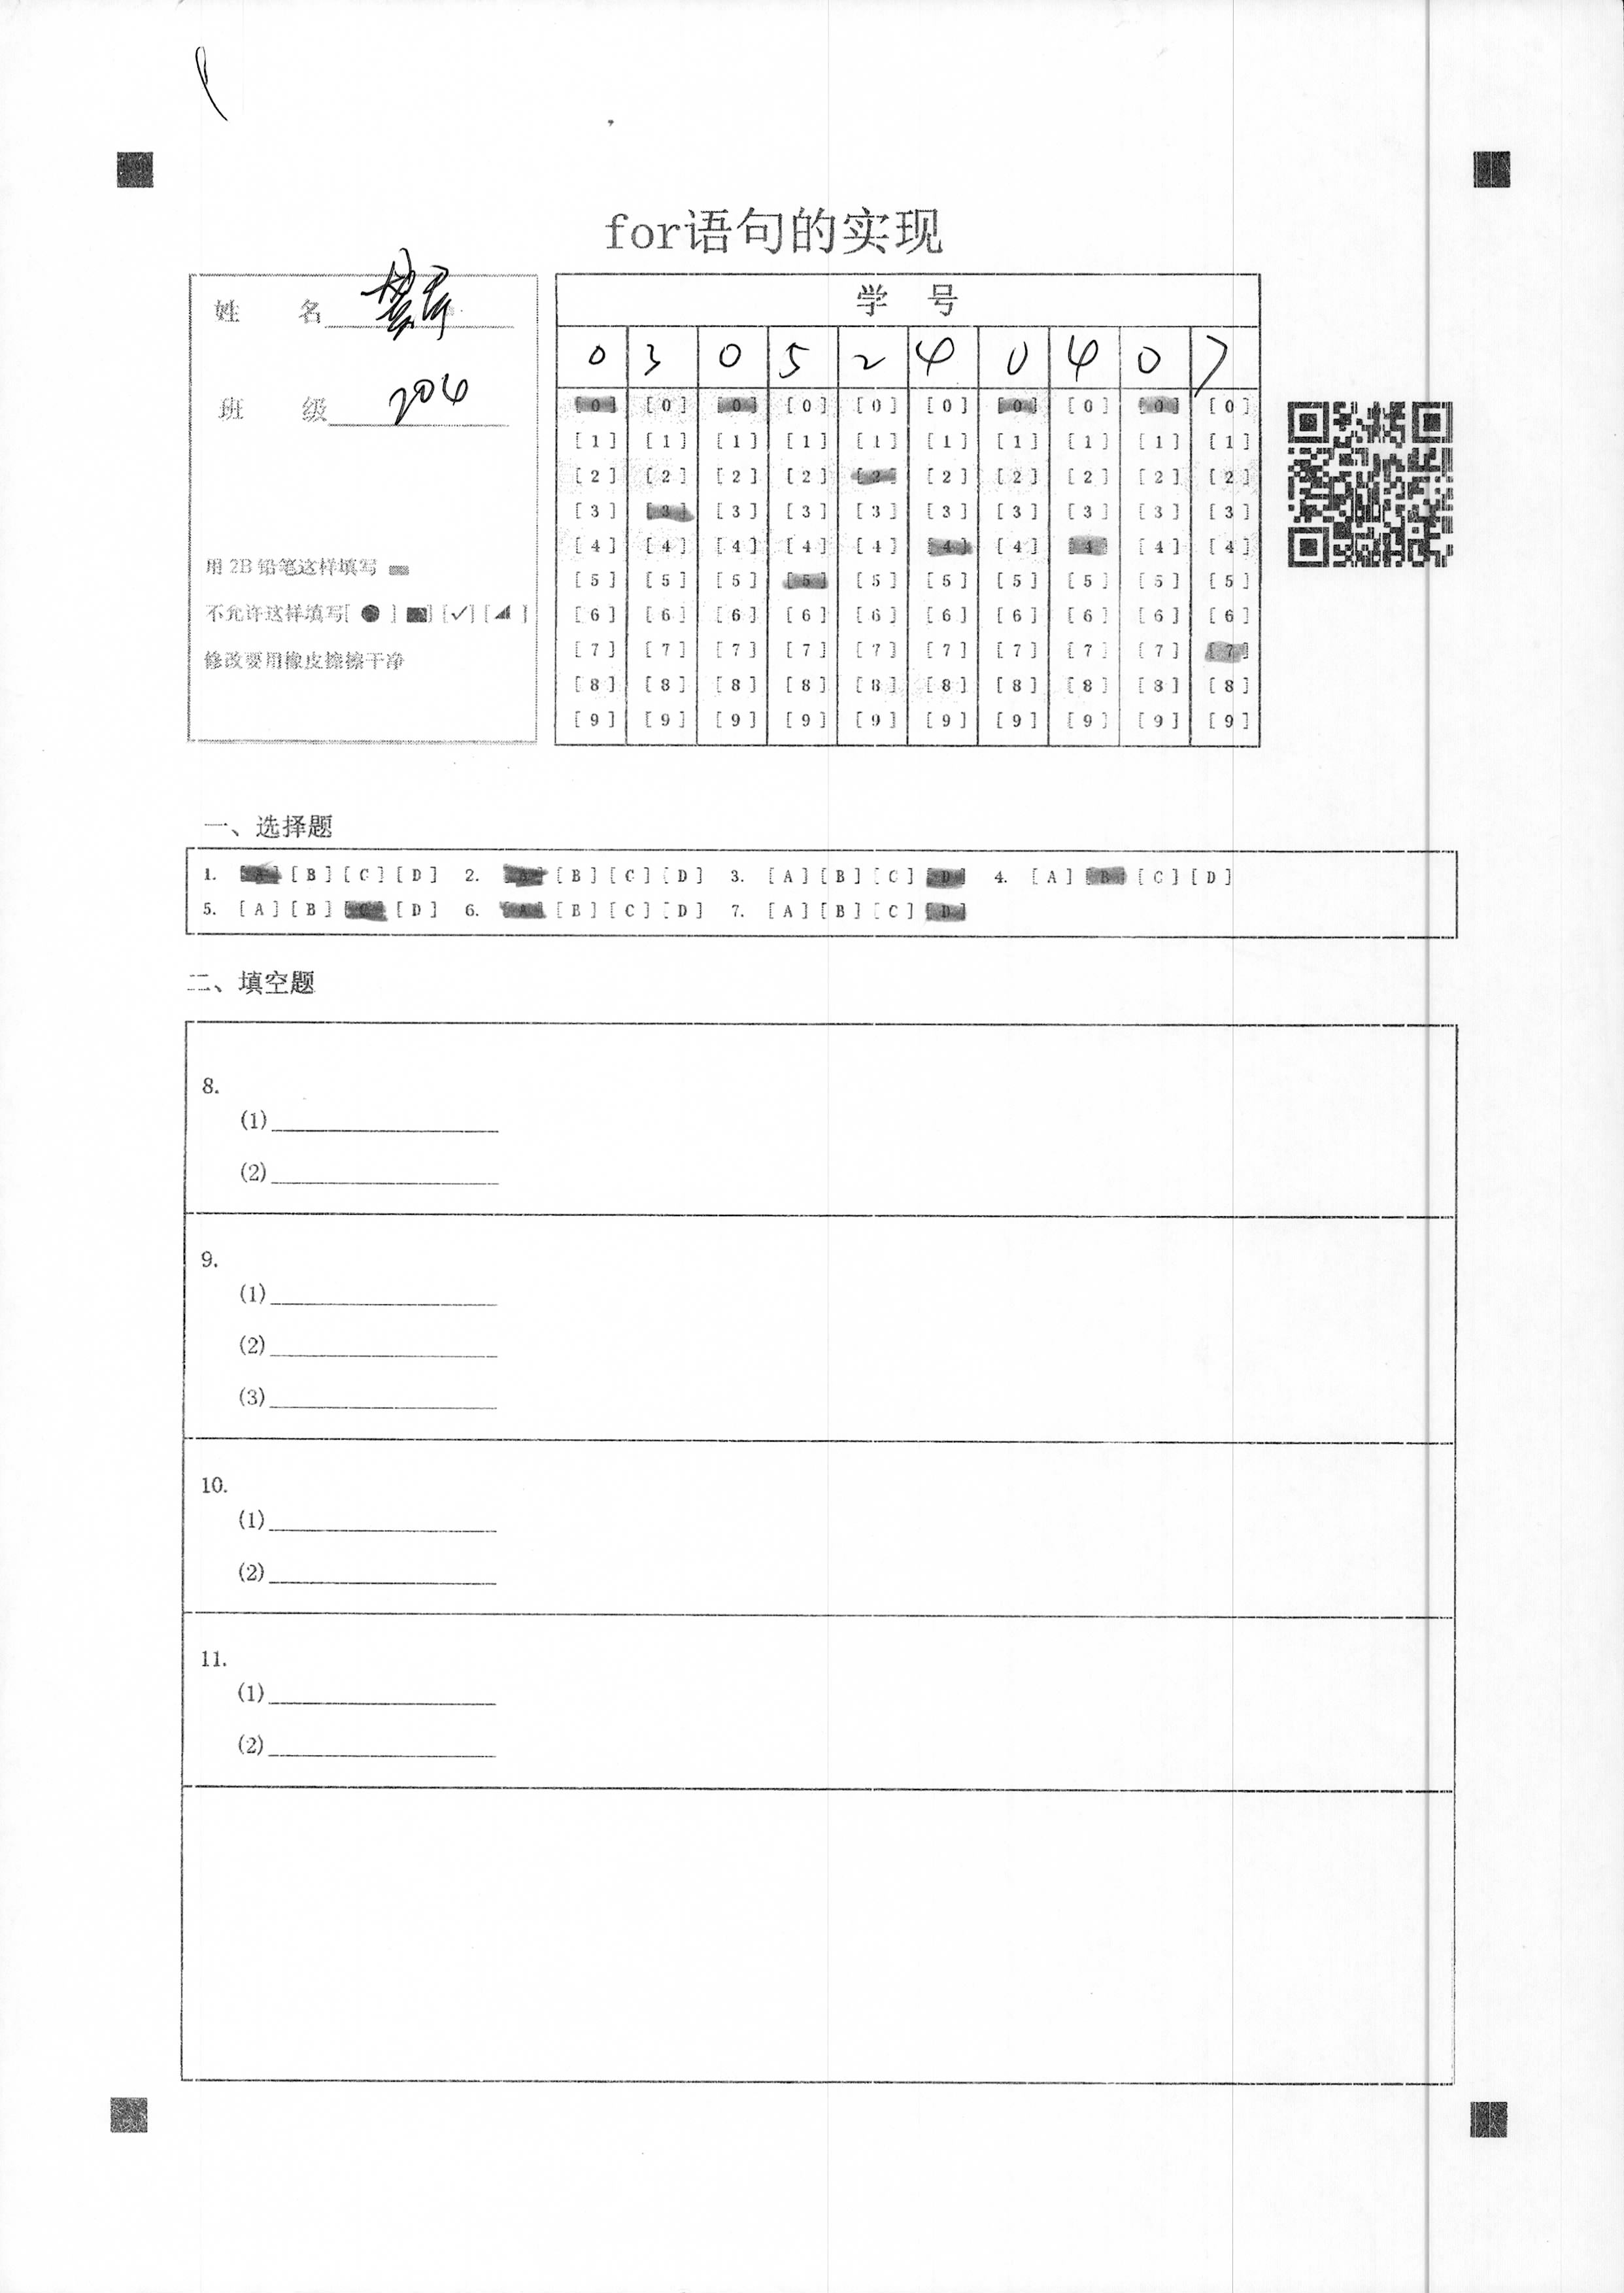 for语句的实现
姓 名
班 级 204
用 2B 铅笔这样填写
不允许这样填写[ ● ] [■] [✓] [◢ ]
修改要用橡皮擦擦干净
学 号
0 3 0 5 2 4 0 4 0 7
[0] [0] [0] [0] [0] [0] [0] [0] [0] [0]
[1] [1] [1] [1] [1] [1] [1] [1] [1] [1]
[2] [2] [2] [2] [2] [2] [2] [2] [2] [2]
[3] [3] [3] [3] [3] [3] [3] [3] [3] [3]
[4] [4] [4] [4] [4] [4] [4] [4] [4] [4]
[5] [5] [5] [5] [5] [5] [5] [5] [5] [5]
[6] [6] [6] [6] [6] [6] [6] [6] [6] [6]
[7] [7] [7] [7] [7] [7] [7] [7] [7] [7]
[8] [8] [8] [8] [8] [8] [8] [8] [8] [8]
[9] [9] [9] [9] [9] [9] [9] [9] [9] [9]
一、选择题
1. [A] [B] [C] [D] 2. [A] [B] [C] [D] 3. [A] [B] [C] [D] 4. [A] [B] [C] [D]
5. [A] [B] [C] [D] 6. [A] [B] [C] [D] 7. [A] [B] [C] [D]
二、填空题
8.
(1)
(2)
9.
(1)
(2)
(3)
10.
(1)
(2)
11.
(1)
(2)